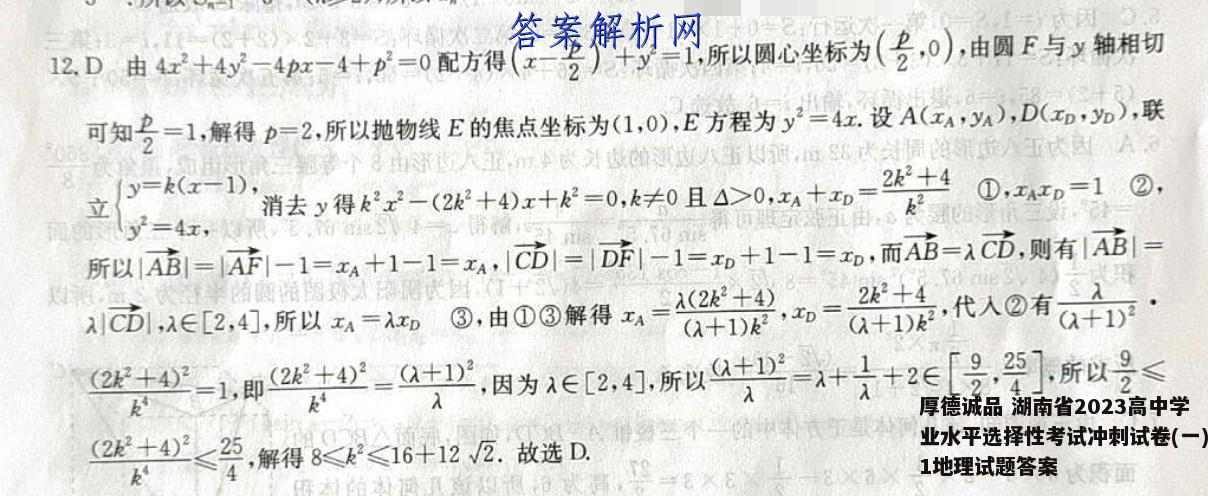 答案解析网
12. D 由 4x²+4y²−4px−4+p²=0 配方得(x−p/2)²+y²=1,所以圆心坐标为(p/2,0),由圆 F 与 y 轴相切
可知 p/2=1,解得 p=2,所以抛物线 E 的焦点坐标为(1,0),E 方程为 y²=4x. 设 A(x_A,y_A),D(x_D,y_D),联
立{y=k(x−1), y²=4x, 消去 y 得 k²x²−(2k²+4)x+k²=0,k≠0 且 Δ>0,x_A+x_D=(2k²+4)/k² ①,x_Ax_D=1 ②,
所以|AB|=|AF|−1=x_A+1−1=x_A,|CD|=|DF|−1=x_D+1−1=x_D,而AB=λCD,则有|AB|=
λ|CD|,λ∈[2,4],所以 x_A=λx_D ③,由①③解得 x_A=λ(2k²+4)/((λ+1)k²),x_D=(2k²+4)/((λ+1)k²),代入②有 λ/(λ+1)²·
(2k²+4)²/k⁴=1,即(2k²+4)²/k⁴=(λ+1)²/λ,因为 λ∈[2,4],所以(λ+1)²/λ=λ+1/λ+2∈[9/2,25/4],所以 9/2≤
(2k²+4)²/k⁴≤25/4,解得 8≤k²≤16+12√2. 故选 D.
厚德诚品 湖南省2023高中学
业水平选择性考试冲刺试卷(一)
1地理试题答案